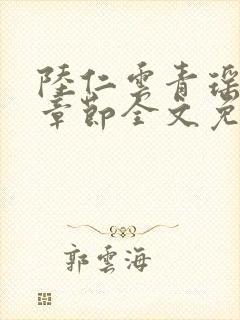 陸仁雲青瑶
章節全文免
郭雲海